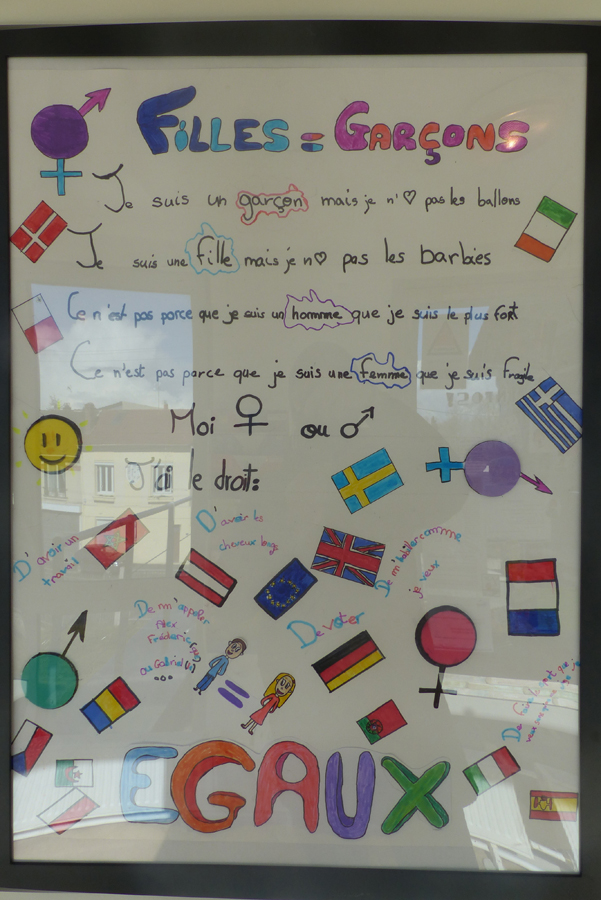 FiLLES = GARÇONS
Je suis un garçon mais je n'♡ pas les ballons
Je suis une fille mais je n♡ pas les barbies
Ce n'est pas parce que je suis un homme que je suis le plus fort
Ce n'est pas parce que je suis une femme que je suis fragile
Moi ♀ ou ♂
J'ai le droit:
D'avoir les
cheveux longs
D'avoir un
travail
De m'habiller comme
je veux
De m'appeler
Alex
Frédéric
ou Gabriel
...
De voter
=
De faire
EGAUX